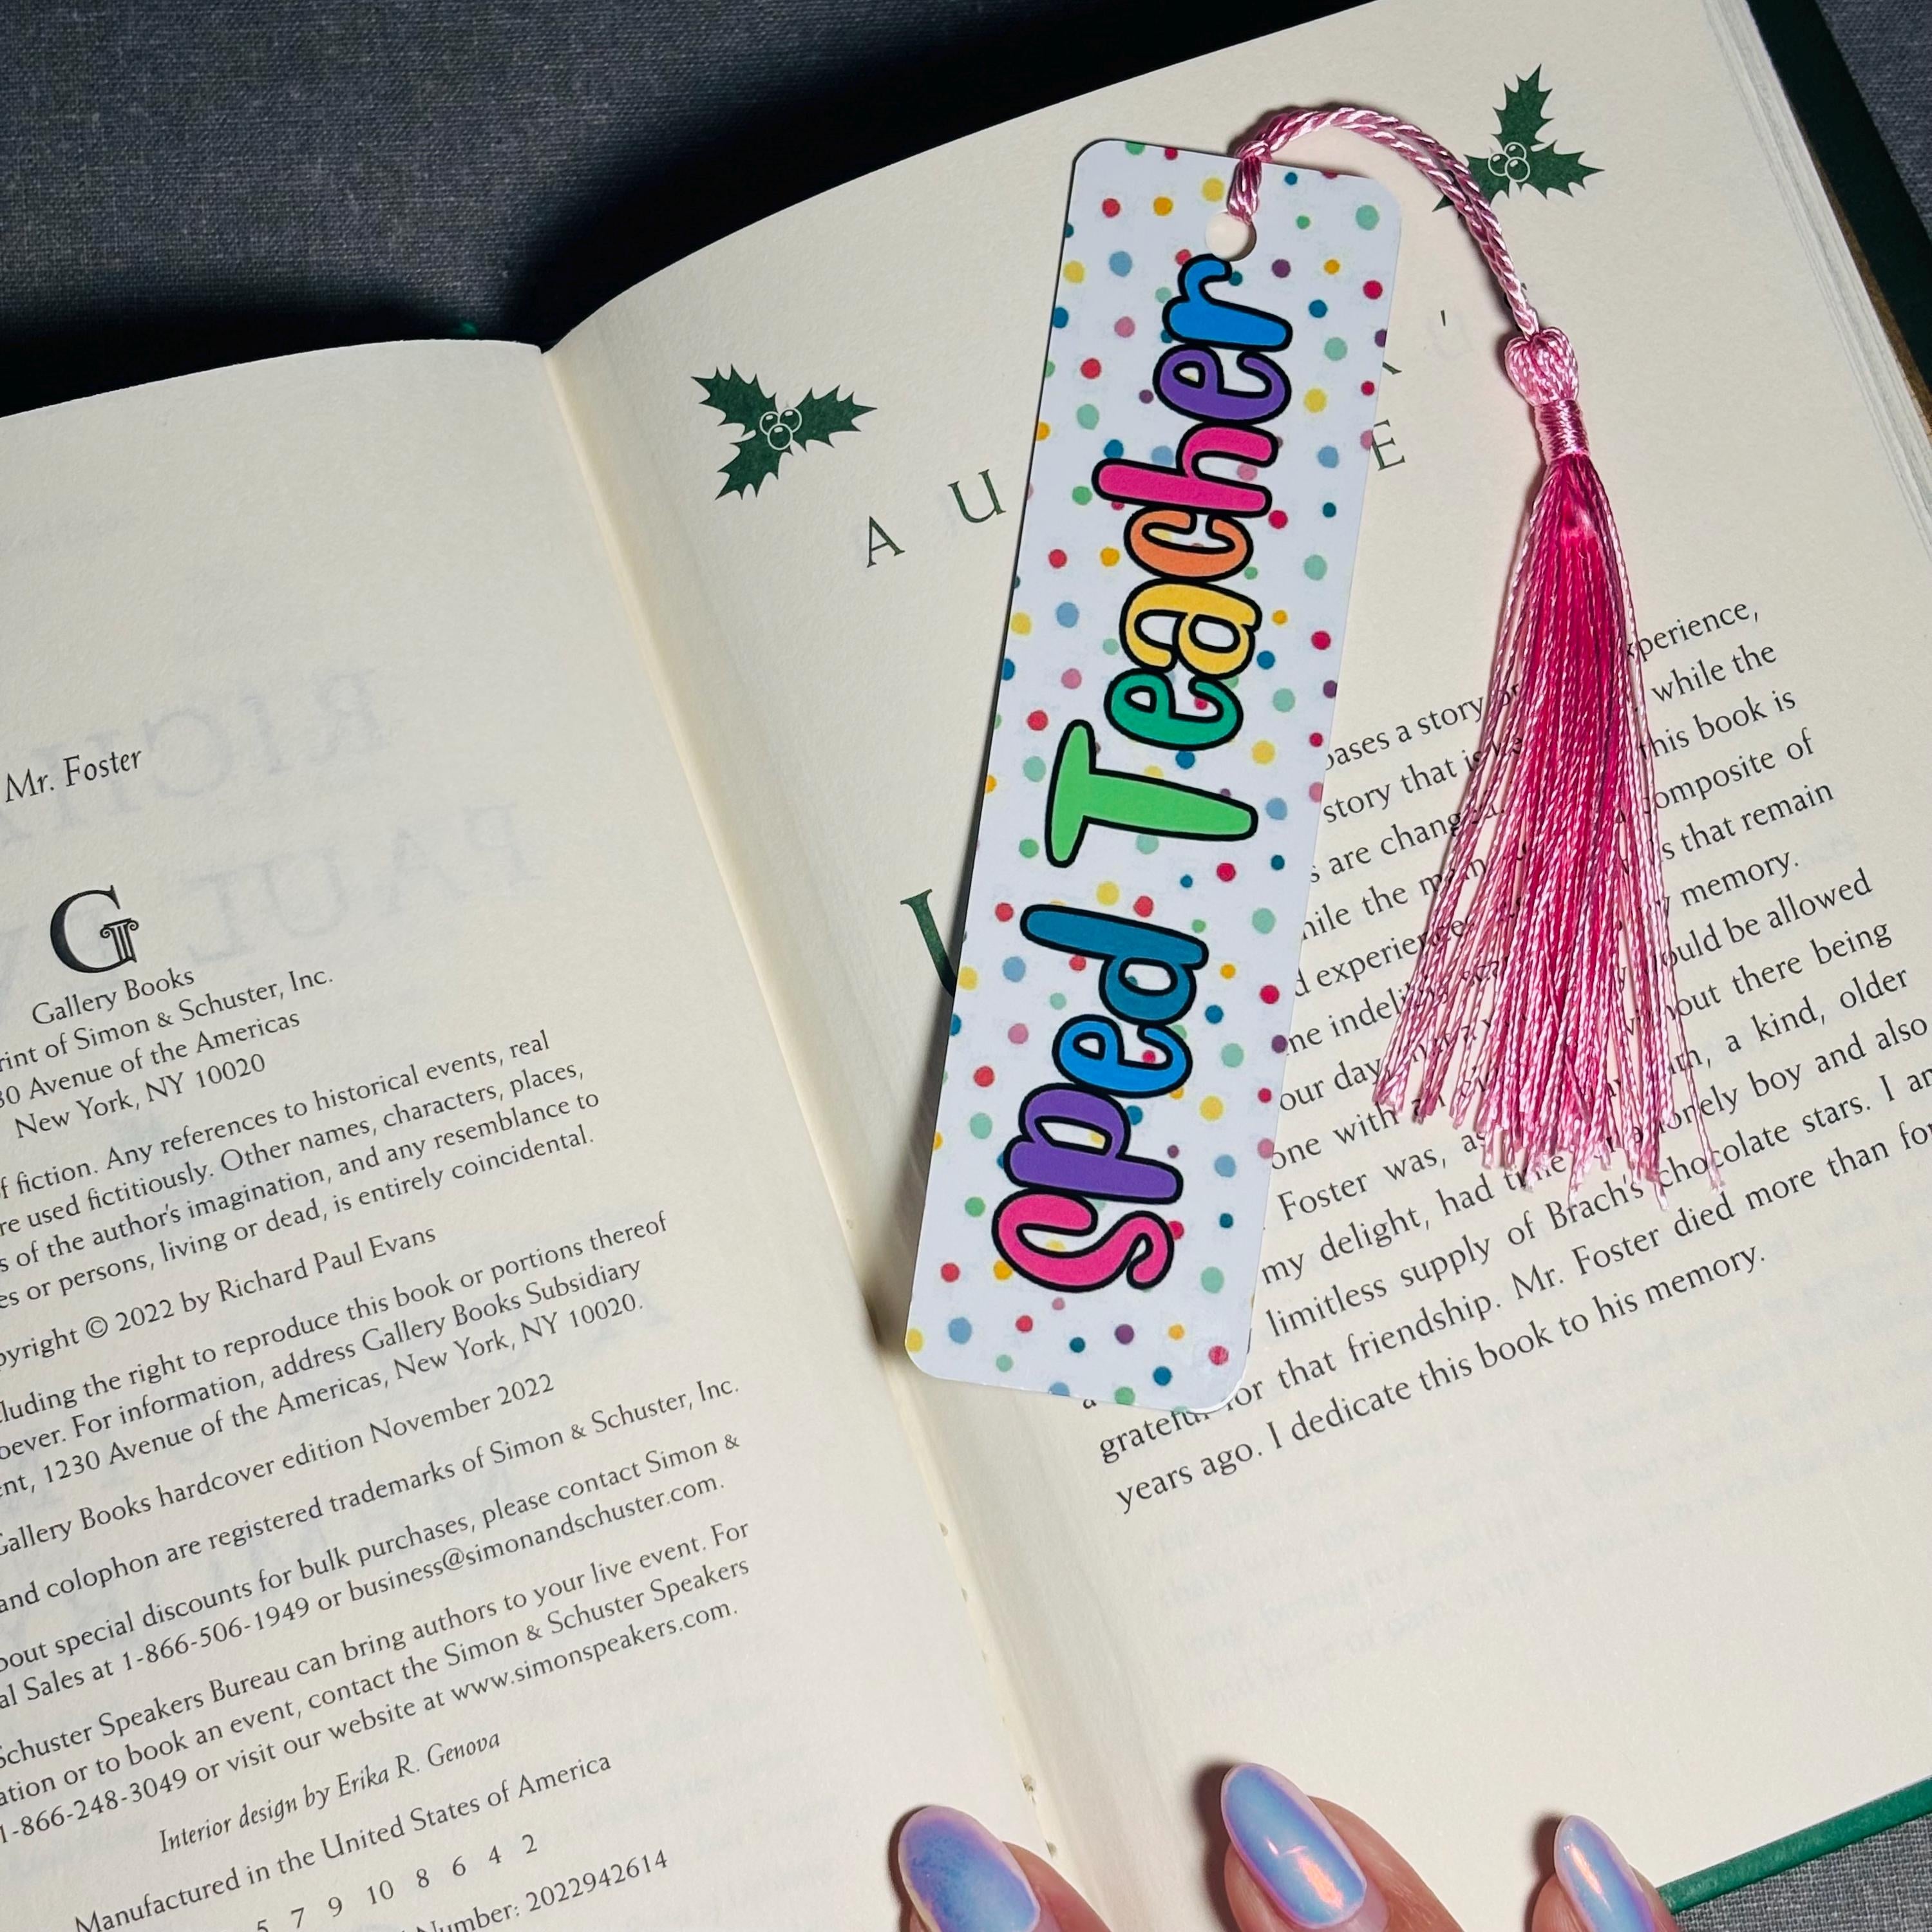 Mr. Foster
G
Gallery Books
of Simon & Schuster, Inc.
Avenue of the Americas
New York, NY 10020
fiction. Any references to historical events, real
used fictitiously. Other names, characters, places,
of the author's imagination, and any resemblance to
or persons, living or dead, is entirely coincidental.
© 2022 by Richard Paul Evans
the right to reproduce this book or portions thereof
For information, address Gallery Books Subsidiary
1230 Avenue of the Americas, New York, NY 10020.
Gallery Books hardcover edition November 2022
and colophon are registered trademarks of Simon & Schuster, Inc.
special discounts for bulk purchases, please contact Simon &
Sales at 1-866-506-1949 or business@simonandschuster.com.
Schuster Speakers Bureau can bring authors to your live event. For
or to book an event, contact the Simon & Schuster Speakers
1-866-248-3049 or visit our website at www.simonspeakers.com.
Interior design by Erika R. Genova
Manufactured in the United States of America
5 7 9 10 8 6 4 2
Number: 2022942614
Sped Teacher
A U E
while the
a story
this book is
story that
composite of
are
that remain
the
memory.
be allowed
there being
indelible
a kind, older
our day
boy and also
one with
chocolate stars. I am
Foster was,
my delight, had time
limitless supply of Brach's
for that friendship. Mr. Foster died more than
grateful
years ago. I dedicate this book to his memory.